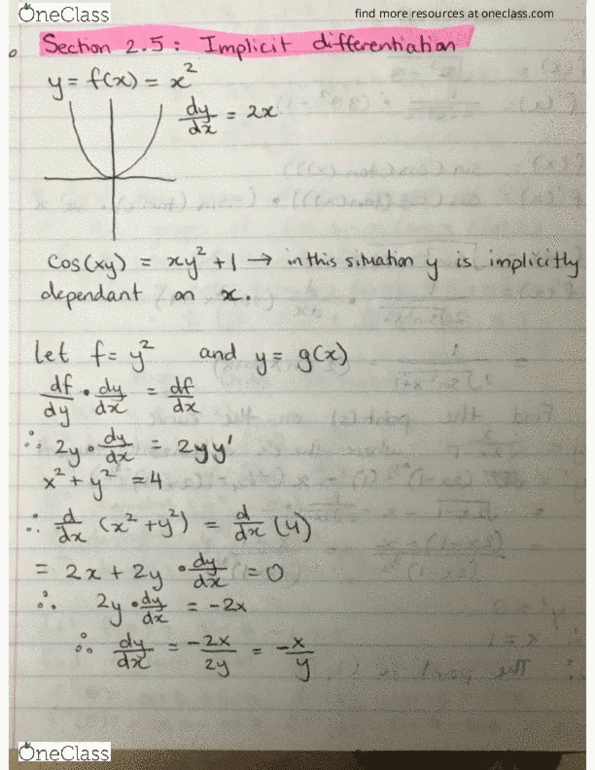 OneClass
find more resources at oneclass.com
Section 2.5: Implicit differentiation
y = f(x) = x²
dy/dx = 2x
cos(xy) = xy² + 1 → in this situation y is implicitly
dependant on x.
Let f = y² and y = g(x)
df/dy • dy/dx = df/dx
∴ 2y • dy/dx = 2yy'
x² + y² = 4
∴ d/dx (x² + y²) = d/dx (4)
= 2x + 2y • dy/dx = 0
∴ 2y • dy/dx = -2x
∴ dy/dx = -2x/2y = -x/y
OneClass